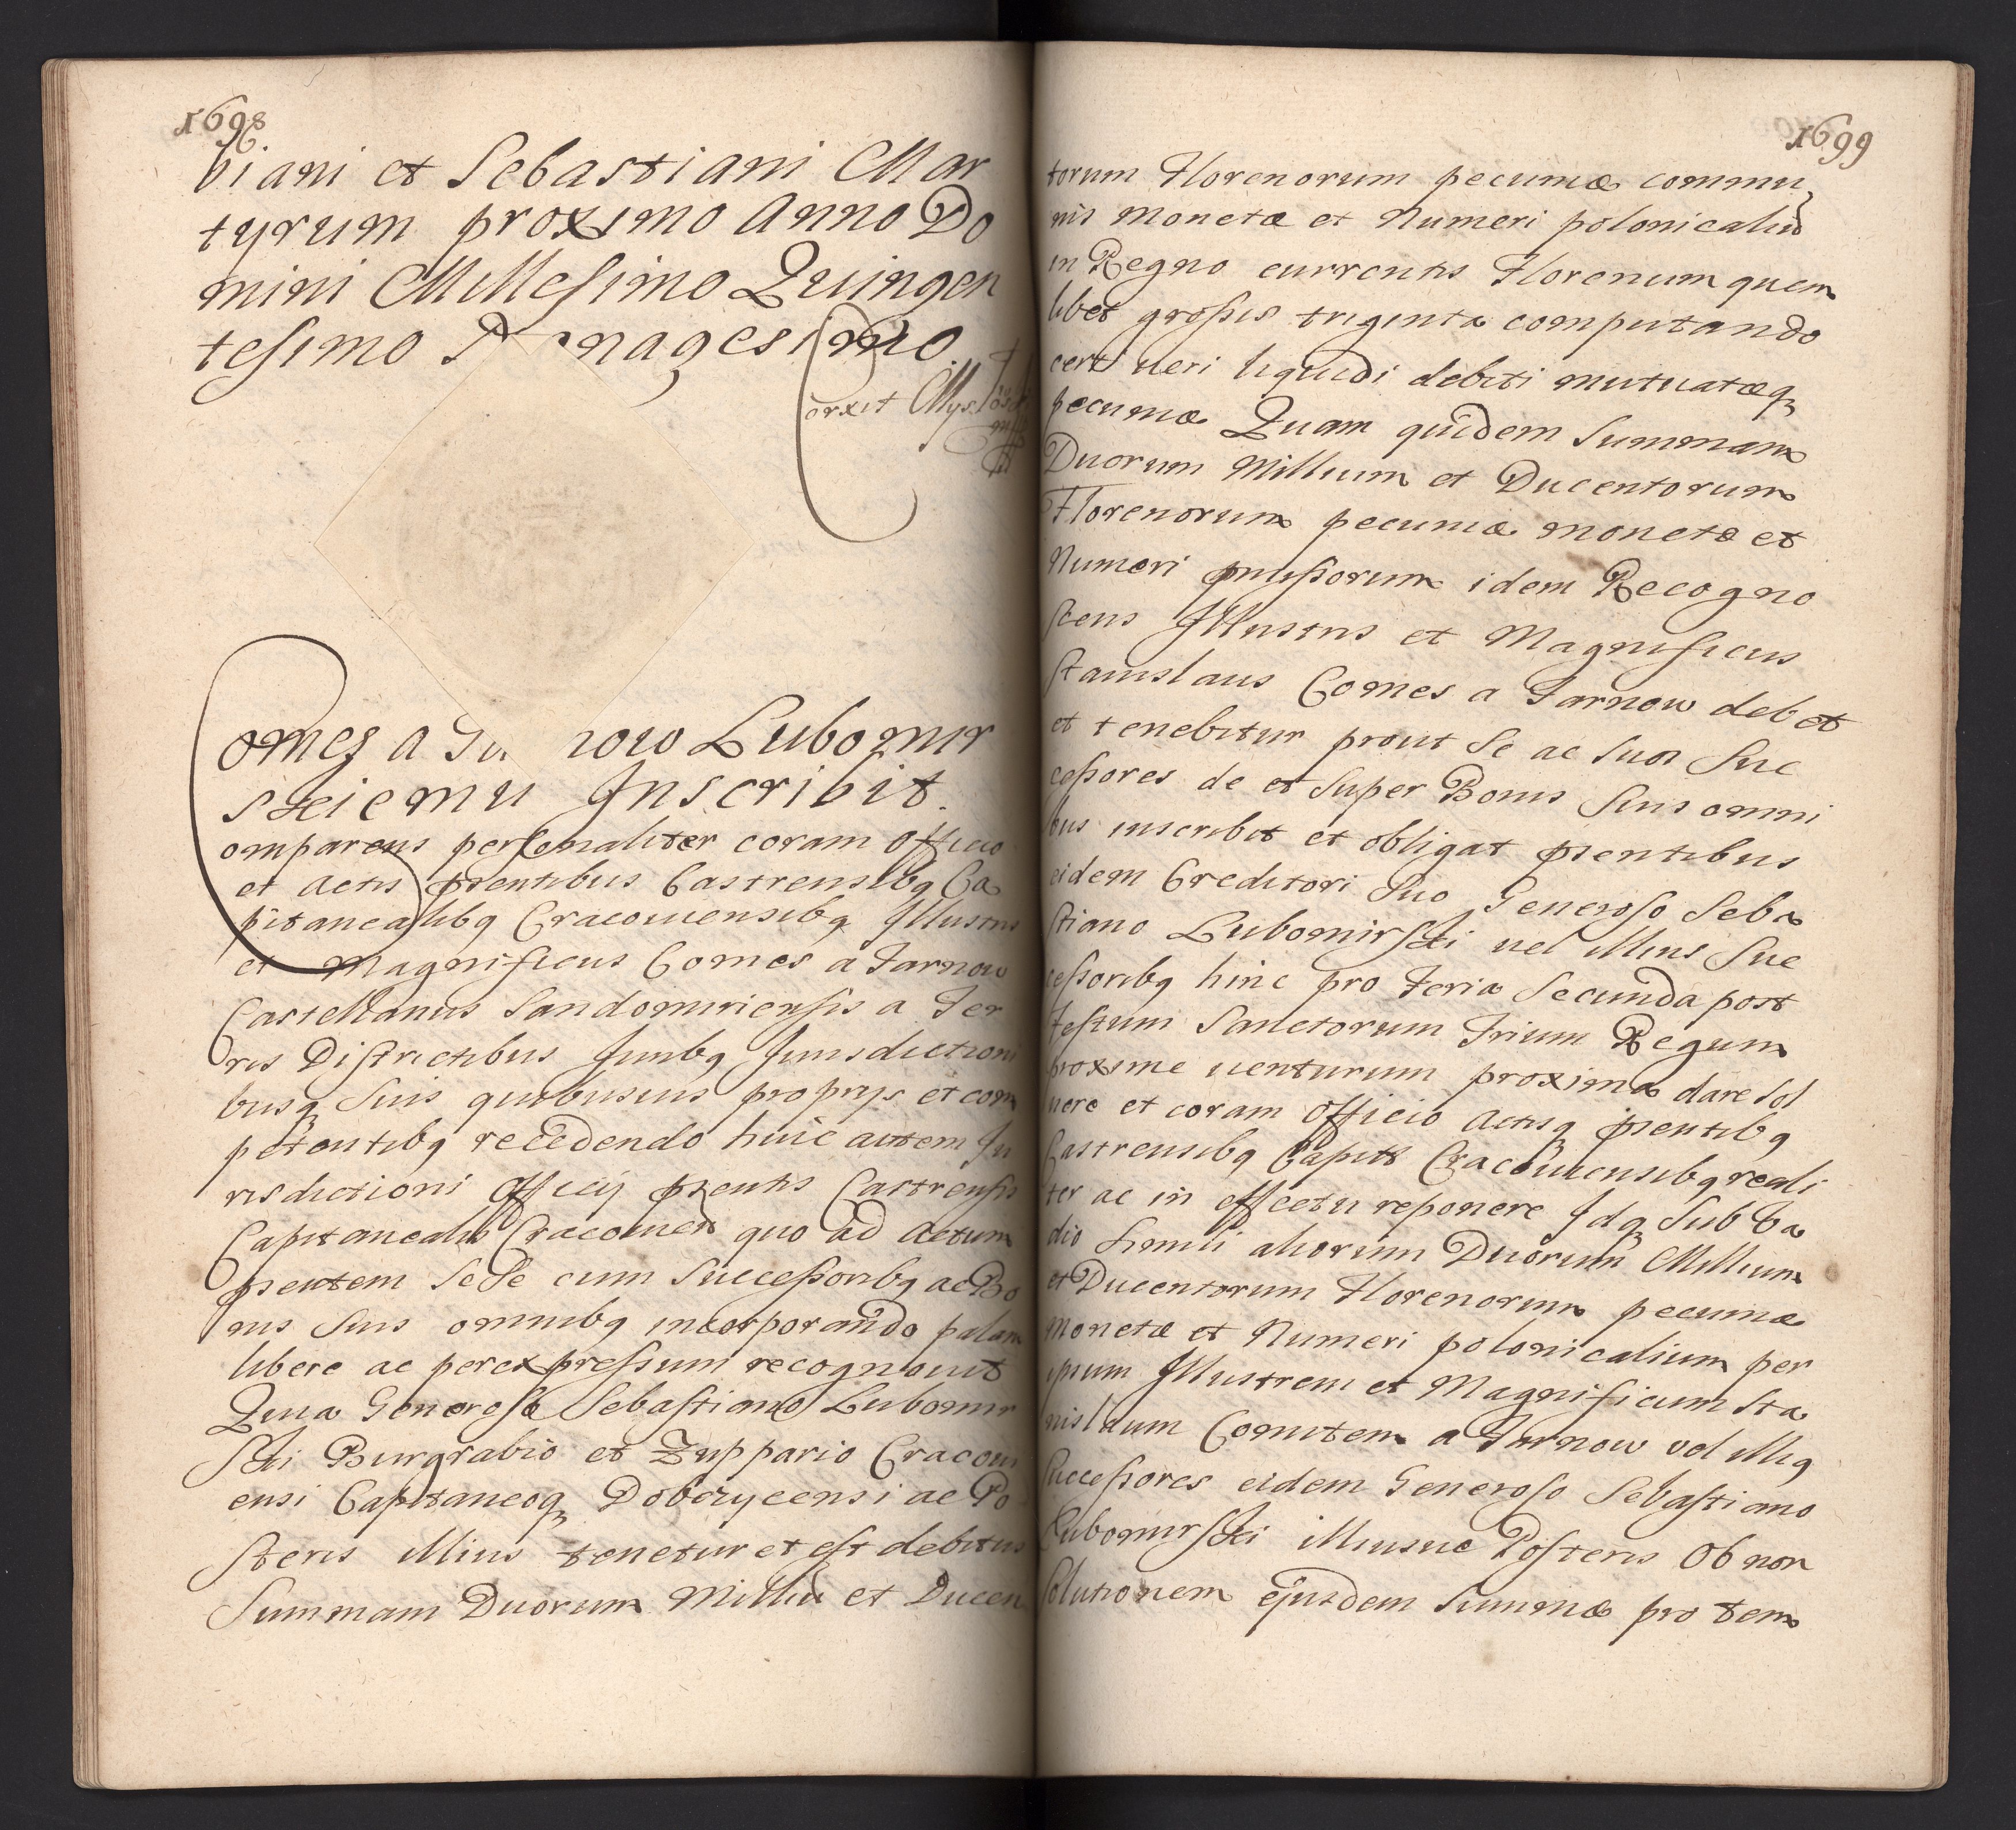 1698
biani et Sebastiani Mar
tyrum proximo Anno Do
mini Millesimo Quingen
tesimo nagesimo
orxit
omes a now Lubomir
skiemu Inscribit.
omparens personaliter coram officio
et actis pñtibus Castrensibq Ca
pitanealibq Cracouiensibq Illustris
et Magnificus Comes a Tarnow
Castellanus Sandomiriensis a Ter
ris Districtibus Juribq Jurisdictioni
busq suis quibusuis proprijs et com
petentibq recedendo huic autem Ju
risdictioni officij pñtis Castrensis
Capitanealis Cracouien quo ad actum
pñtem Sese cum Successoribq ac Bo
nis suis omnibq incorporando palam
libere ac per expressum recognouit
Quia Generoso Sebastiano Lubomir
ski Burgrabio et Zuppario Cracoui
ensi Capitaneoq Dobczycensi ac Po
steris illius tenetur et est debitus
Summam Duorum Milliū et Ducen
1699
torum Florenorum pecuniæ commu
nis monetæ et Numeri polonicaliū
in Regno currentis Florenum quem
libet grossis triginta computando
certi ueri liquidi debiti mutuatæq
pecuniæ Quam quidem Summam
Duorum Millium et Ducentorum
Florenorum pecuniæ monetæ et
Numeri pmissorum idem Recogno
scens Illustris et Magnificus
Stanislaus Comes a Tarnow debet
et tenebitur prout Se ac suos Suc
cessores de et super Bonis Suis omni
bus inscribit et obligat pñtibus
eidem Creditori Suo Generoso Seba
stiano Lubomirski uel illius Suc
cessoribq hinc pro Feria Secunda post
festum Sanctorum Trium Regum
proxime uenturum proxima dare sol
uere et coram officio Actisq pñtibq
Castrensibq Capitt Cracouiensibq reali
ter ac in effectu reponere Idq sub Va
dio Simili aliorum Duorum Millium
et Ducentorum Florenorum pecuniæ
Monetæ et Numeri polonicalium per
ipsum Illustrem et Magnificum Sta
nislaum Comitem a Tarnow vel illiq
Successores eidem Generoso Sebastiano
Lubomirski illiusue Posteris Ob non
Solutionem ejusdem Summæ pro tem